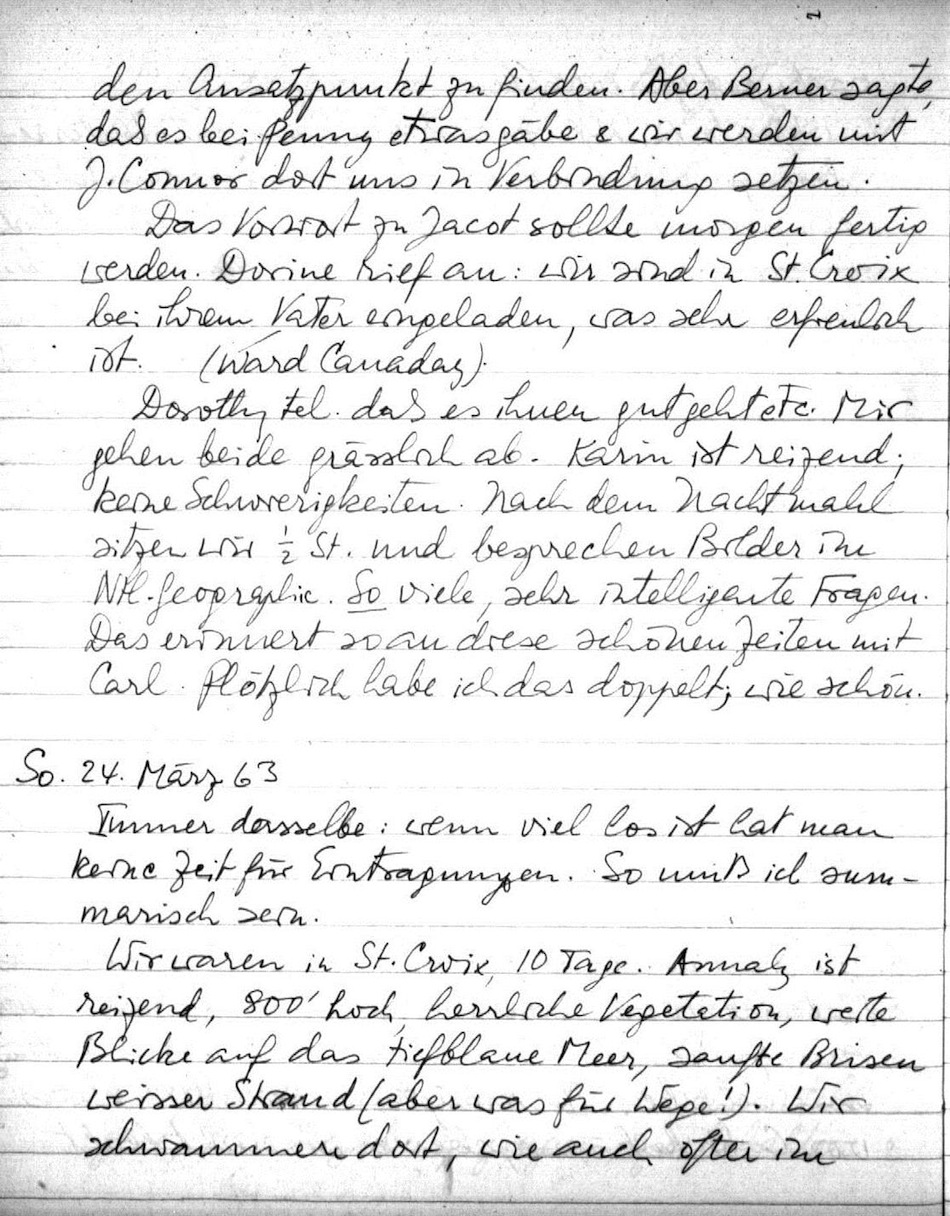 2
den Ansatzpunkt zu finden. Aber Berner sagte,
daß es bei Penny etwas gäbe & wir werden mit
J. Connor dort uns in Verbindung setzen.
Das Vorwort zu Jacot sollte morgen fertig
werden. Dorine rief an: wir sind in St. Croix
bei ihrem Vater eingeladen, was sehr erfreulich
ist. (Ward Canaday).
Dorothy tel. daß es ihnen gut geht etc. Mir
gehen beide grässlich ab. Karin ist reizend;
keine Schwierigkeiten. Nach dem Nachtmahl
sitzen wir ½ St. und besprechen Bilder im
Ntl. Geographic. So viele, sehr intelligente Fragen.
Das erinnert so an diese schönen Zeiten mit
Carl. Plötzlich habe ich das doppelt; wie schön.
So. 24. März 63
Immer dasselbe: wenn viel los ist hat man
keine Zeit für Eintragungen. So muß ich sum-
marisch sein.
Wir waren in St. Croix, 10 Tage. Annaly ist
reizend, 800' hoch, herrliche Vegetation, weite
Blicke auf das tiefblaue Meer, sanfte Brisen
weisser Strand (aber was für Wege!). Wir
schwammen dort, wie auch öfter im